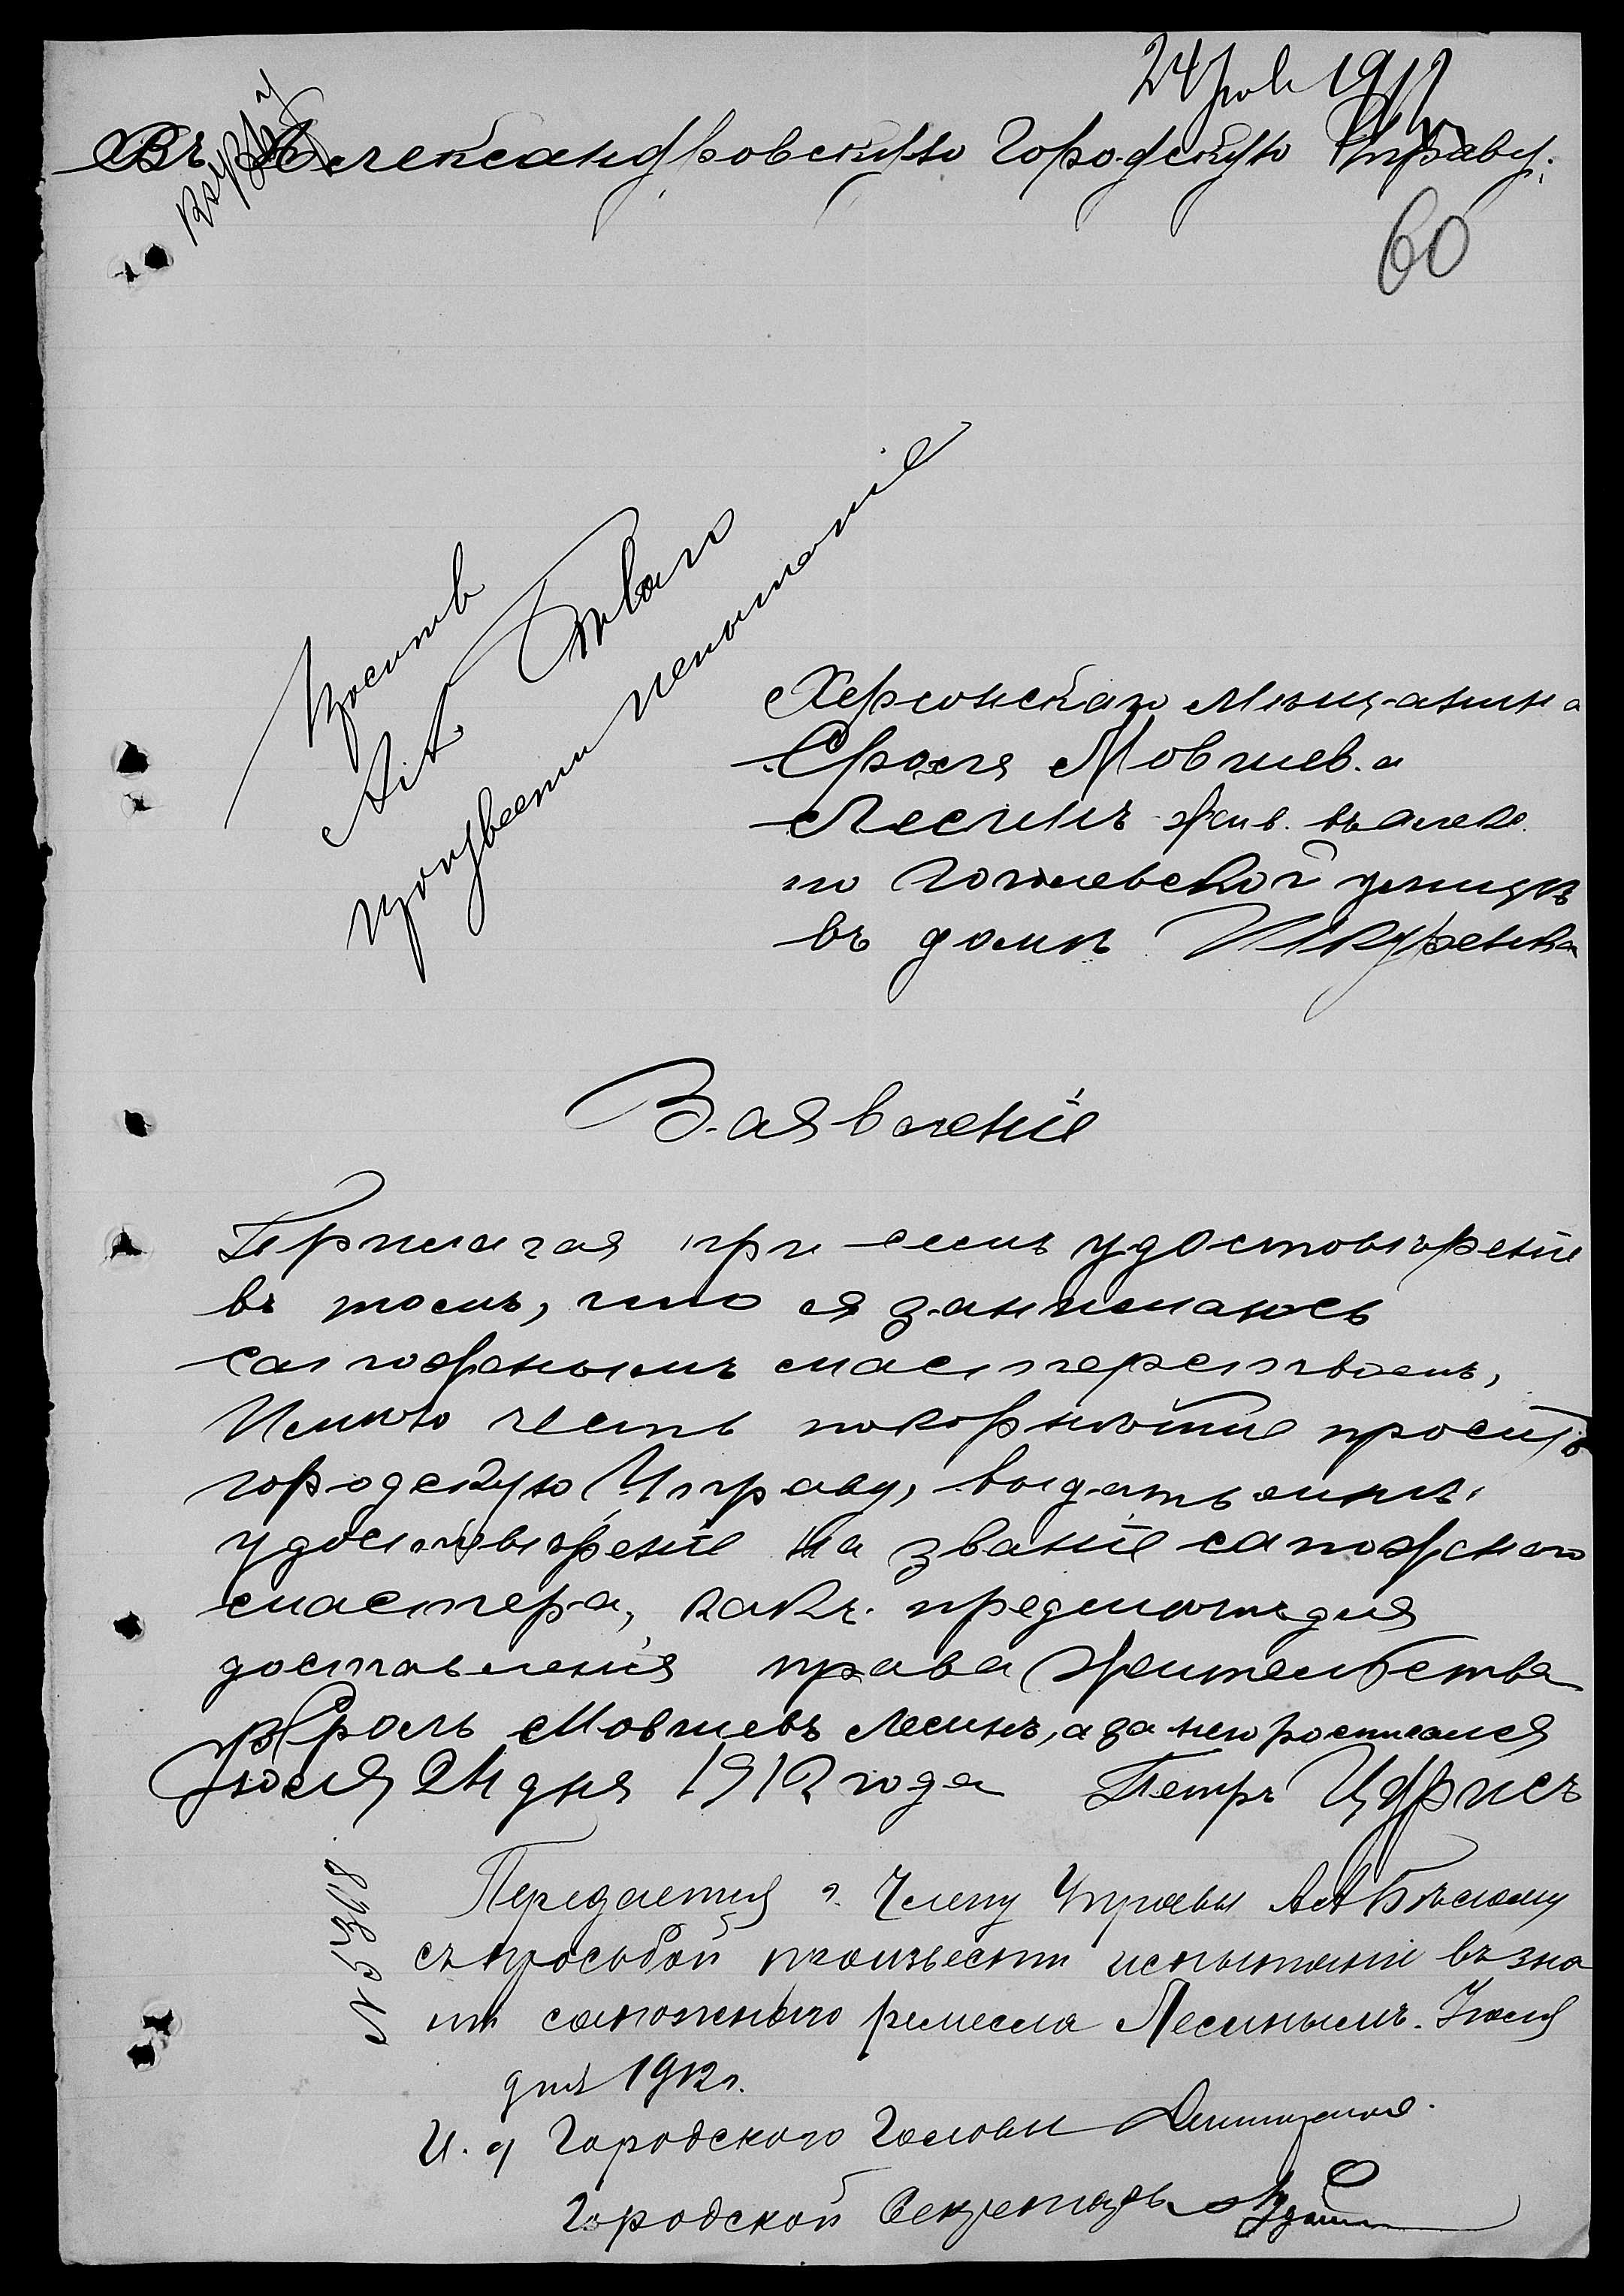 24 июл 1912
Въ Александровскую Городскую Управу.
60
Просить
А. А. Бѣлаго
произвести испытаніе
Херсонскаго Мѣщанина
Сроля Мовшева
Лесинъ жив. въ Алекс.
по Гоголевской улицѣ
въ домѣ Шкуренка
Заявленіе
Прилагая при семъ удостовѣреніе
въ томъ, что я занимаюсь
сапожнымъ мастерствомъ,
Имѣю честь покорнѣйше просить
городскую Управу, выдать мнѣ
удостовѣреніе на званіе сапожнаго
мастера, какъ предметъ для
доставленія права жительства
Сроль Мовшевъ Лесинъ, а за него росписался
Іюля 24 дня 1912 года Петръ
№ 5308
Передается г. Члену Управы А. А. Бѣлому
съ просьбой произвести испытаніе въ зна
ніи сапожнаго ремесла Лесинымъ. Іюля
дня 1912 г.
И. д. Городского Головы
Городской Секретарь